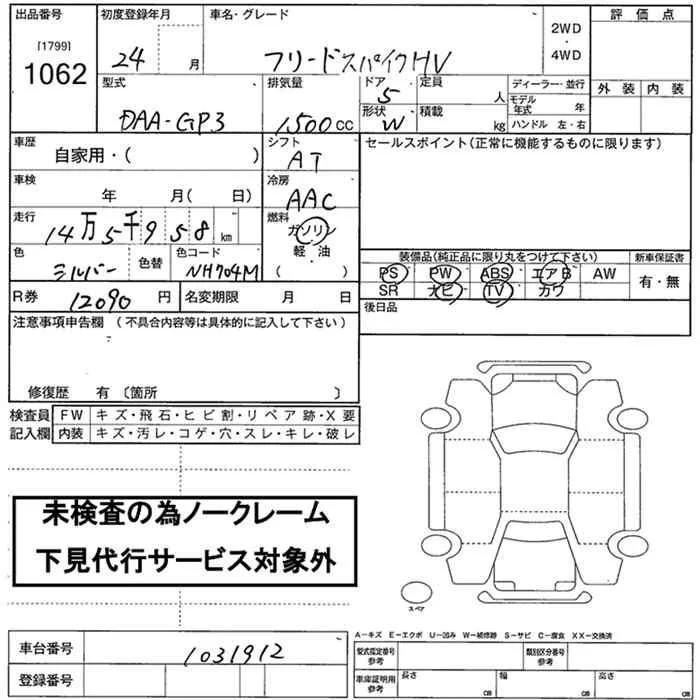 出品番号 初度登録年月 車名・グレード 評価点
[1799]
1062
24 月 フリードスパイクHV 2WD ・ 4WD
外装 内装
型式 排気量 ドア 定員 ディーラー・並行
5 人 モデル年式 年
DAA-GP3 1500cc 形状 W 積載 kg ハンドル 左・右
車歴 シフト セールスポイント(正常に機能するものに限ります)
自家用・( ) AT
車検 冷房
年 月( 日) AAC
走行 燃料
14万5千958km ガソリン
軽・油
( )
色 色替 色コード 装備品(純正品に限り丸をつけて下さい) 新車保証書
シルバー NH704M PS PW ABS エアB AW 有・無
SR ナビ TV カワ
R券 12090円 名変期限 月 日 後日品
注意事項申告欄 (不具合内容等は具体的に記入して下さい)
修復歴 有 〔箇所 〕
検査員 FW キズ・飛石・ヒビ割・リペア跡・X要
記入欄 内装 キズ・汚レ・コゲ・穴・スレ・キレ・破レ
未検査の為ノークレーム
下見代行サービス対象外
スペア
A－キズ E－エクボ U－凹み W－補修跡 S－サビ C－腐食 XX－交換済
車台番号 1031912 型式指定番号 参考 類別区分番号 参考
登録番号 車庫証明用 参考 長さ cm 幅 cm 高さ cm